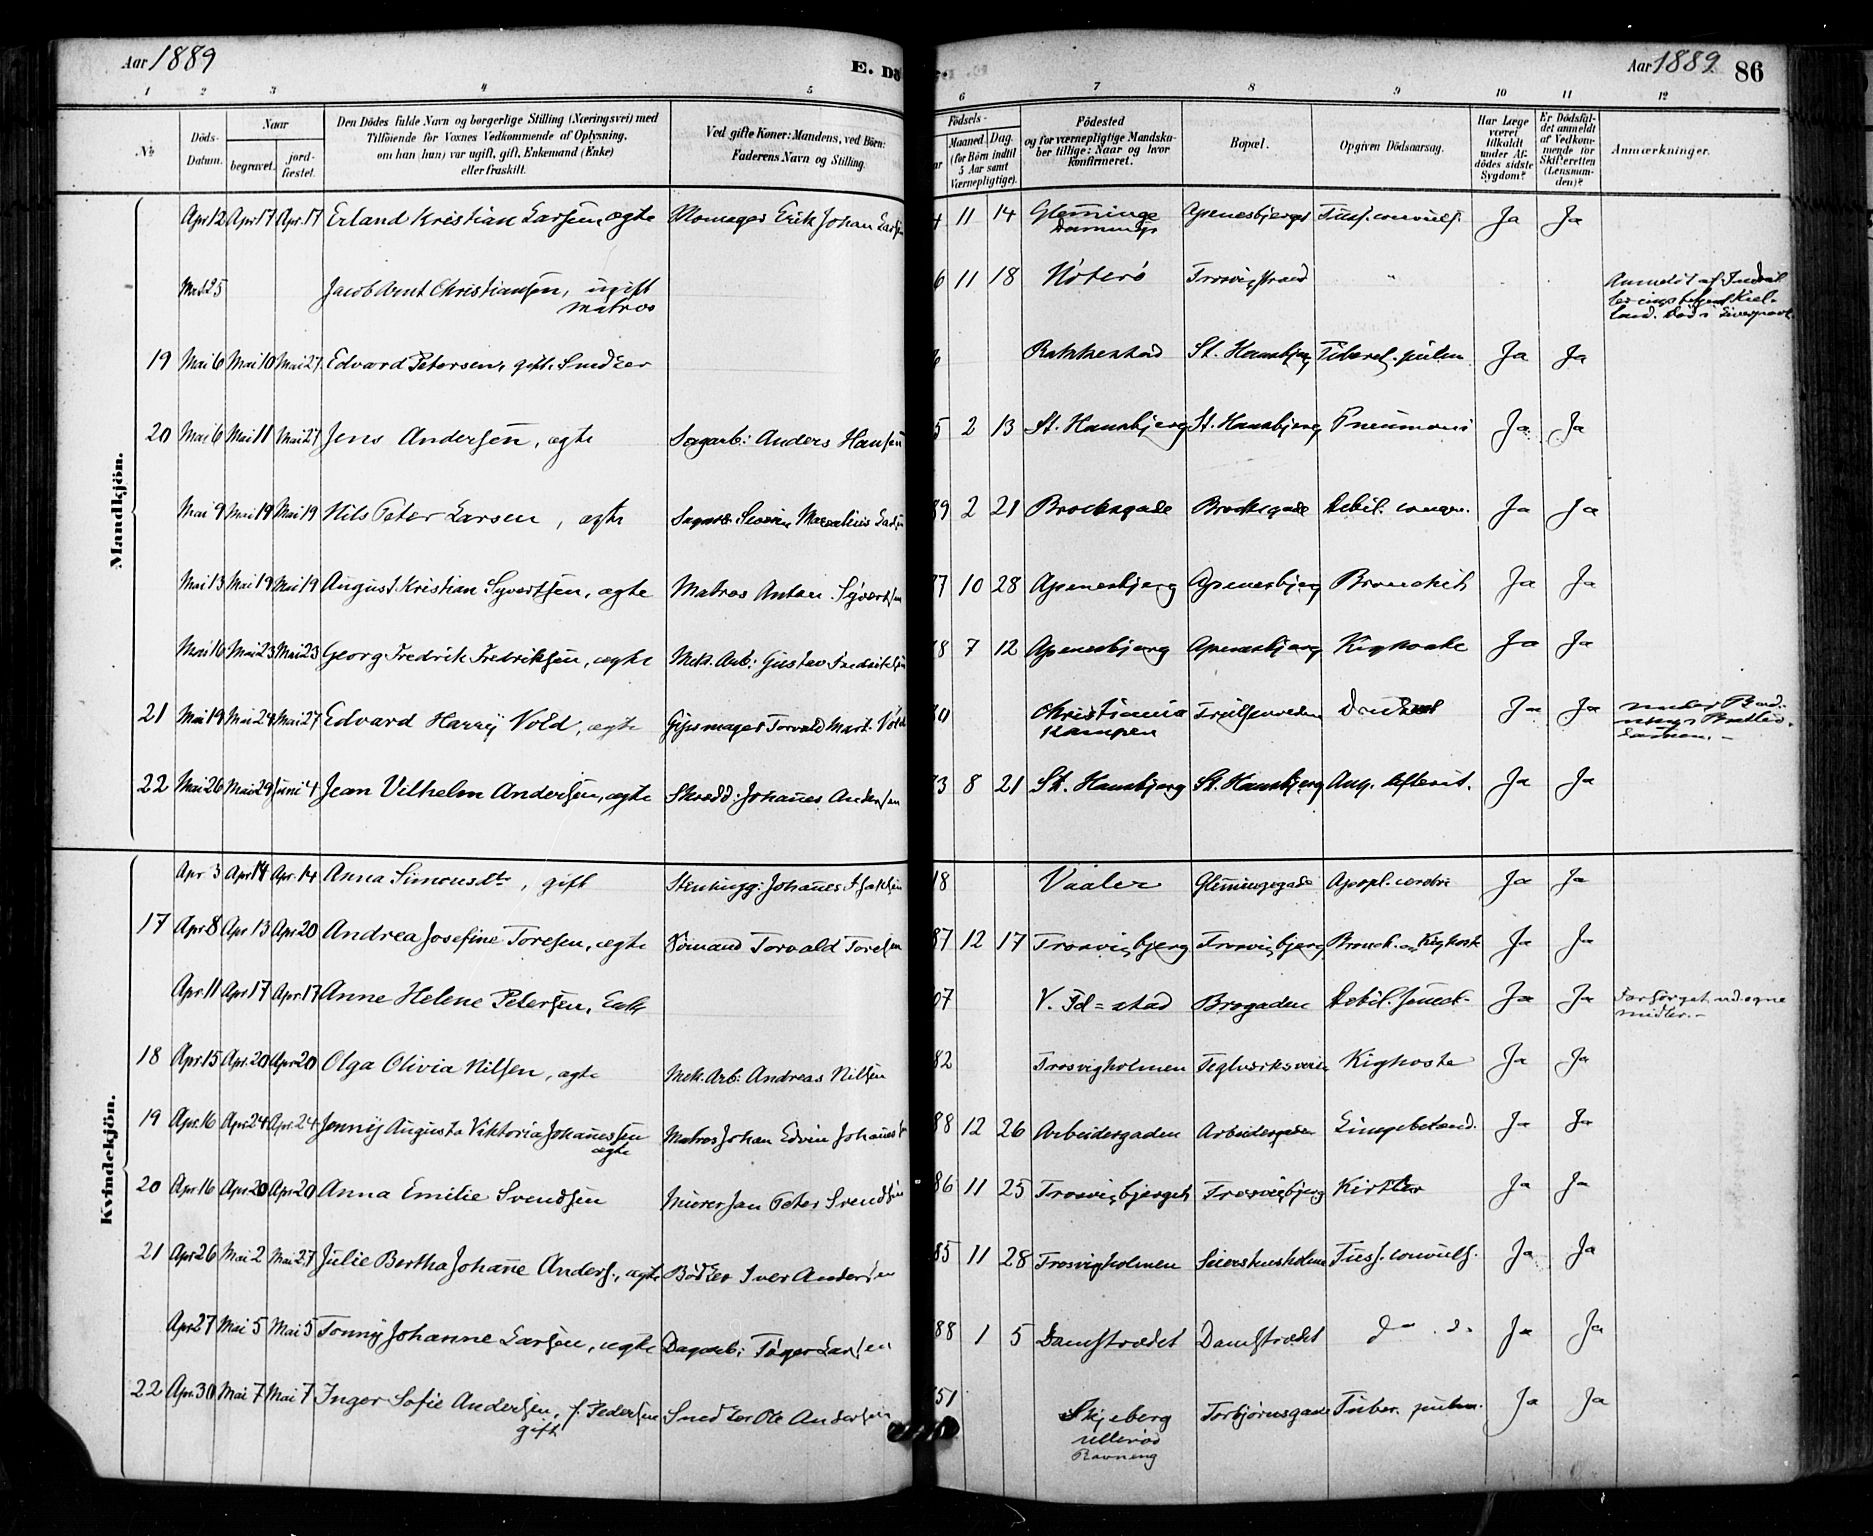 Aar 1889
E. Dö
Aar 1889 86
1 2 3 4 5 6 7 8 9 10 11 12
№
Döds-
Datum.
Naar
begravet.
jord-
fæstet.
Den Dödes fulde Navn og borgerlige Stilling (Næringsvei) med
Tilföiende for Voxnes Vedkommende af Oplysning,
om han (hun) var ugift, gift, Enkemand (Enke)
eller fraskilt.
Ved gifte Koner: Mandens, ved Börn:
Faderens Navn og Stilling.
Födsels-
Maaned Dag
(for Börn indtil
5 Aar samt
Værnepligtige).
Födested
og for værnepligtige Mandska-
ber tillige: Naar og hvor
konfirmeret.
Bopæl.
Opgiven Dödsaarsag.
Har Læge
været
tilkaldt
under Af-
dödes sidste
Sygdom?
Er Dödsfal-
det anmeldt
af Vedkom-
mende for
Skifteretten
(Lensman-
den)?
Anmærkninger.
Mandkjön.
Apr 12 Apr 17 Apr. 17 Erland Kristian Larsen, ægte Erik Johan Larsen 11 14 Glemminge Apenesbjerget Tuss. convuls. Ja Ja
Jacob Arnt Christiansen, ugift 6 11 18 Nøterø Trosvigstrand "
matros
19 Mai 6 Mai 10 Mai 27 Edvard Petersen, gift. Smed Rakkestad St. Hansbjerg Ja Ja
20 Mai 6 Mai 11 Mai 27 Jens Andersen, ægte Sagarb: Anders Hansen 5 2 13 St. Hansbjerg St. Hansbjerg Pneumoni Ja Ja
Mai 9 Mai 19 Mai 19 Nils Peter Larsen, ægte 89 2 21 Brochsgade Brochsgade Debil. congen. Ja Ja
Mai 13 Mai 19 Mai 19 August Kristian Syvertsen, ægte Matros Anton Syvertsen 7 10 28 Apenesbjerg Apenesbjerg Bronchit Ja Ja
Mai 16 Mai 23 Mai 23 Georg Fredrik Fredriksen, ægte Mek. Arb: Gustav Fredriksen 8 7 12 Apenesbjerg Apenesbjerg Kighoste Ja Ja
21 Mai 19 Mai 24 Mai 27 Edvard Harry Vold, ægte Gipsmager Torvald Mart. Vold Christiania Ja Ja
Kampen
22 Mai 26 Mai 29 Juni 4 Jean Vilhelm Andersen, ægte Skredd: Johanes Andersen 3 8 21 St. Hansbjerg St. Hansbjerg Ja Ja
Kvindekjön.
Apr 3 Apr 14 Apr. 14 Anna Simonsdtr, gift Stenhugg: Johanes 18 Vaaler Glemmingegade Apopl. cerebri Ja Ja
17 Apr 8 Apr 13 Apr 20 Andrea Josefine Toresen, ægte Sømand Torvald Toresen 87 12 17 Trosvigbjerg Trosvigbjerg Bronch. og Kighoste Ja Ja
Apr. 11 Apr 17 Apr. 17 Anne Helene Petersen, Enke 07 V. Fd=stad Brogaden Debil. senect. Ja Ja Forsörget ved egne
midler.
18 Apr. 15 Apr. 20 Apr 20 Olga Olivia Nilsen, ægte Mek. Arb: Andreas Nilsen 82 Trosvigholmen Teglverksveien Kighoste Ja Ja
19 Apr. 16 Apr. 24 Apr. 24 Jenny Augusta Viktoria Johanessen Matros Johan Edvin Johanessen 88 12 26 Arbeidergaden Arbeidergaden Lungebetænd. Ja Ja
ægte
20 Apr. 16 Apr 20 Apr 20 Anna Emilie Svendsen Murer Jan Peter Svendsen 86 11 25 Trosvigbjerget Trosvigbjerg Kirtler Ja Ja
21 Apr 26 Mai 2 Mai 27 Julie Bertha Johane Anders., ægte Bødker Iver Andersen 85 11 28 Trosvigholmen Tuss. convuls. Ja Ja
Apr 27 Mai 5 Mai 5 Tonny Johanne Larsen, ægte Dagarb: Tøger Larsen 88 1 5 Damstrædet Damstrædet d" . d" Ja Ja
22 Apr. 30 Mai 7 Mai 7 Inger Sofie Andersen, f. Pedersen Smed Ole Andersen 51 Skjeberg Torbjørnsgade Tuber. pulm. Ja Ja
gift
Ullerød